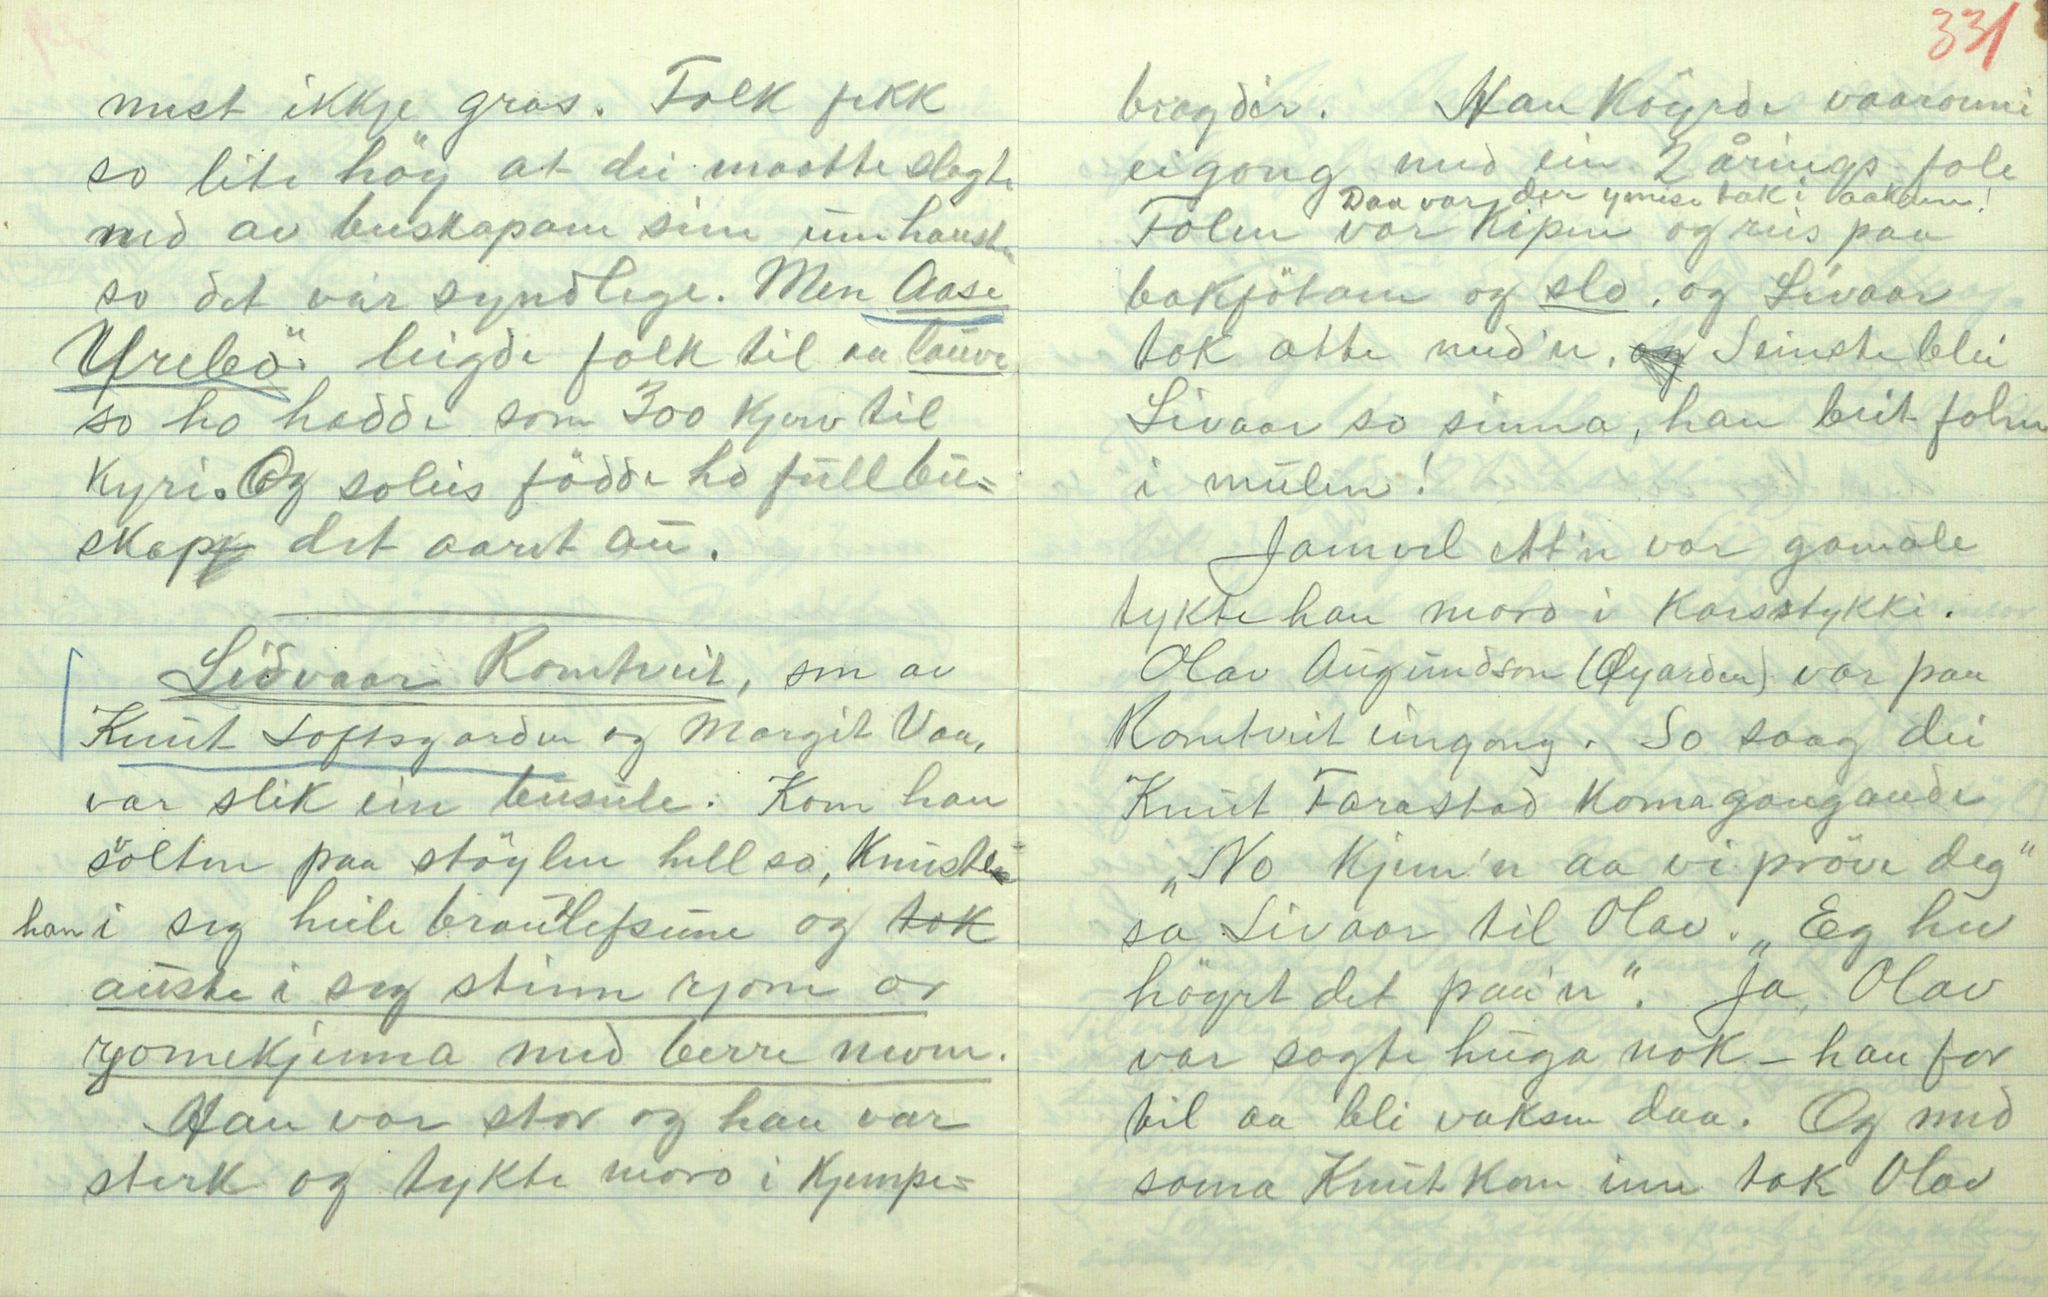 mest ikkje gras. Folk fekk
so lite höy at dei maatte slagte
ned av buskapam sin um hausten
so det var syndlege. Men Aase
Urebö leigde folk til aa lauve
so ho hadde som 300 kjerv til
kyri. Og soleis födde ho full bu-
skap det aaret au.
Lidvaar Romtveit, son av
Knut Loftsgarden og Margit Vaa,
var slik ein busule. Kom han
solten paa stöylen hell so, knuste
han i seg heile brautlefsune og tok
auste i seg stinn rjom or
rjomekjenna med berre nevin.
Han var stor og han var
sterk og tykte moro i kjempe-
331
bragder. Han köyrde vaaronni
eigong med ein 2 årings fole
Daa var der ymise tak i aakeren!
Folen var kipen og reis paa
bakfötam og slo. og Livaar
tok atte med'n. Seinste blei
Livaar so sinna, han beit folen
i mulen!
Jamvel ett'n var gamale
tykte han moro i karsstykki.
Olav Augundson (Öygarden) var paa
Romtveit eingong. So saag dei
Knut Farastad koma gangande
"No kjem'n aa vi pröve deg"
sa Livaar til Olav. "Eg hev
höyrt det paa'n". Ja, Olav
var sagte huga nok - han for
til aa bli vaksen daa. Og med
soma Knut kom inn tok Olav